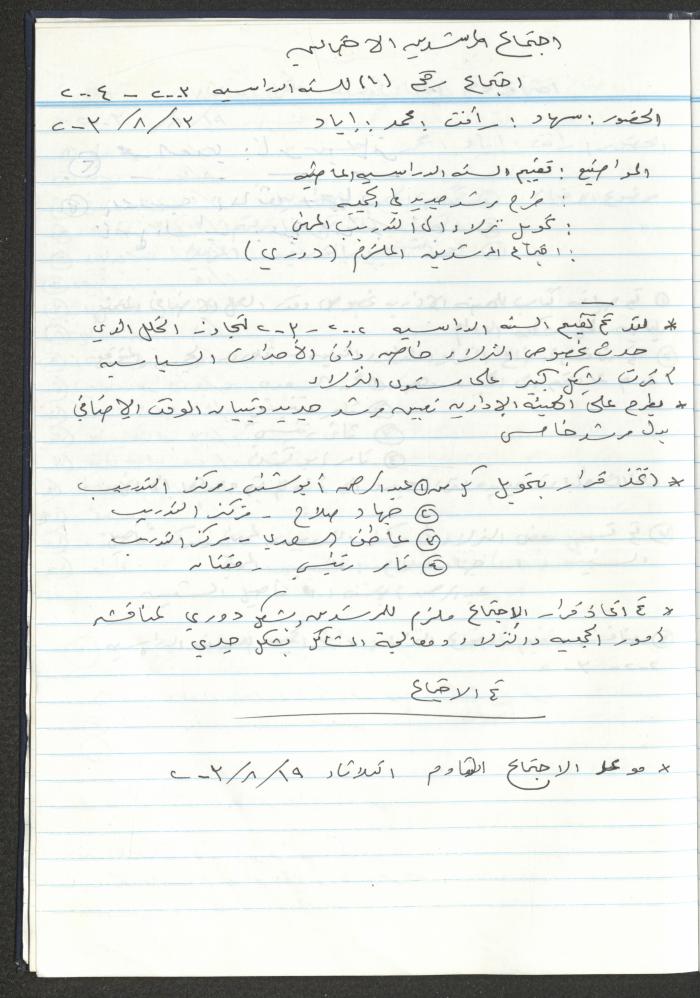 اجتماع المرشدين الاجتماعيين
اجتماع رقم (١) للسنه الدراسيه ٢٠٠٣ - ٢٠٠٤
الحضور: سهاد: رأفت: محمد: إياد ٢٠٠٣/٨/١٢
المواضيع: تقييم السنه الدراسيه الماضيه
: طرح مرشد جديد في الجمعيه
: تحويل نزلاء الى التدريب المهني
: اجتماع المرشدين الملزم (دوري)
* لقد تم تقييم السنه الدراسيه ٢٠٠٢ - ٢٠٠٣ لتجاوز الخلل الذي
حدث بخصوص النزلاء خاصه وأن الأحداث السياسيه
أثرت بشكل كبير على مستوى النزلاء
* يطرح على الهيئه الإداريه تعيين مرشد جديد وتبيان الوقت الإضافي
بدل مرشد خامس
* اتخذ قرار بتحويل كل من ① عبدالرحمن أبو - مركز التدريب
② جهاد صلاح - مركز التدريب
③ عاطف السعدي - مركز التدريب
④ ثامر -
* تم اتخاذ قرار الاجتماع ملزم للمرشدين بشكل دوري لمناقشه
أمور الجمعيه والنزلاء ومعالجة المشاكل بشكل جدي
تم الاجتماع
* موعد الاجتماع القادم الثلاثاء ٢٠٠٣/٨/١٩